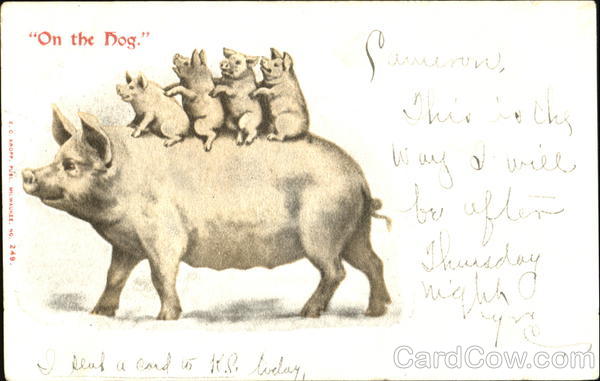 "On the Hog."
E. C. KROPP, PUB. MILWAUKEE. NO. 249.
Cameron,
This is the
way I will
be after
Thursday
night
I sent a card to K.S. today,
CardCow.com